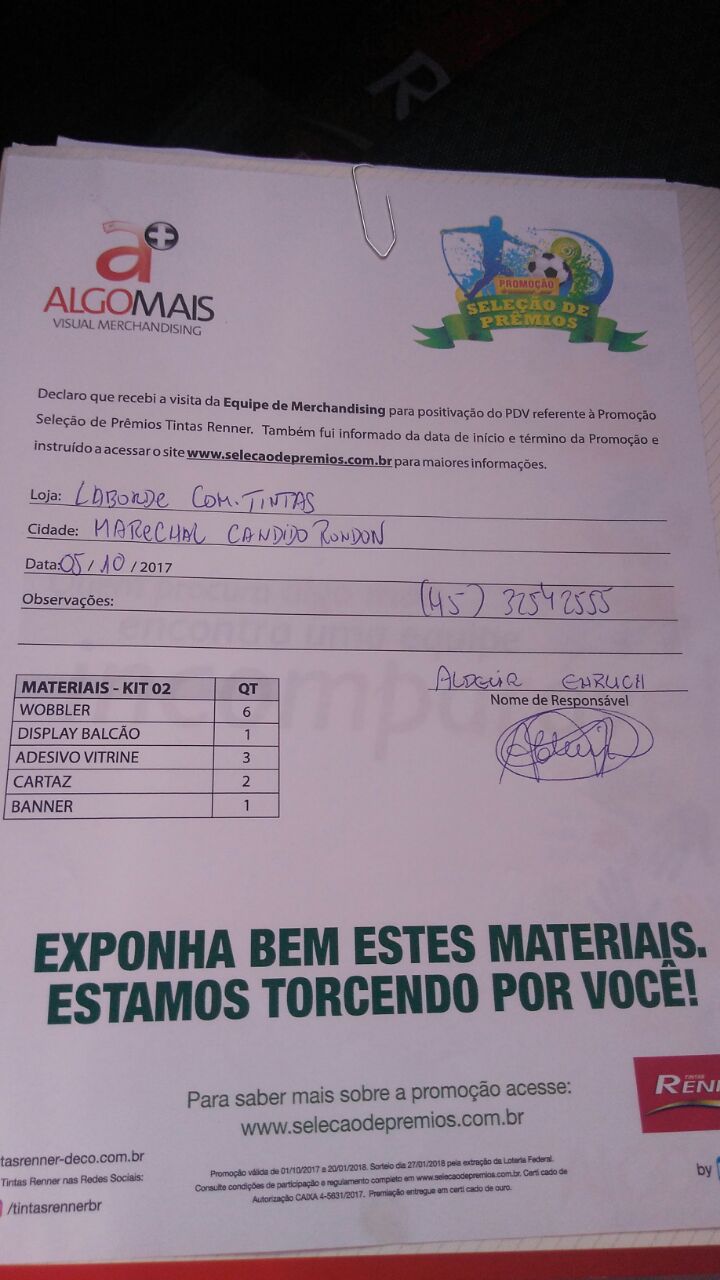 R
a+
ALGOMAIS
VISUAL MERCHANDISING
PROMOÇÃO
SELEÇÃO DE
PRÊMIOS
Declaro que recebi a visita da Equipe de Merchandising para positivação do PDV referente à Promoção
Seleção de Prêmios Tintas Renner. Também fui informado da data de início e término da Promoção e
instruído a acessar o site www.selecaodepremios.com.br para maiores informações.
Loja: LABORDE COM. TINTAS
Cidade: MARECHAL CANDIDO RONDON
Data: 05 / 10 / 2017
Observações: (45) 32542555
ALDEIR EHRLICH
Nome de Responsável
MATERIAIS - KIT 02 QT
WOBBLER 6
DISPLAY BALCÃO 1
ADESIVO VITRINE 3
CARTAZ 2
BANNER 1
EXPONHA BEM ESTES MATERIAIS.
ESTAMOS TORCENDO POR VOCÊ!
Para saber mais sobre a promoção acesse:
www.selecaodepremios.com.br
TINTAS
RENN
tasrenner-deco.com.br
Tintas Renner nas Redes Sociais:
/tintasrennerbr
Promoção válida de 01/10/2017 a 20/01/2018. Sorteio dia 27/01/2018 pela extração da Loteria Federal.
Consulte condições de participação e regulamento completo em www.selecaodepremios.com.br. Certi cado de
Autorização CAIXA 4-5631/2017. Premiação entregue em certi cado de ouro.
by